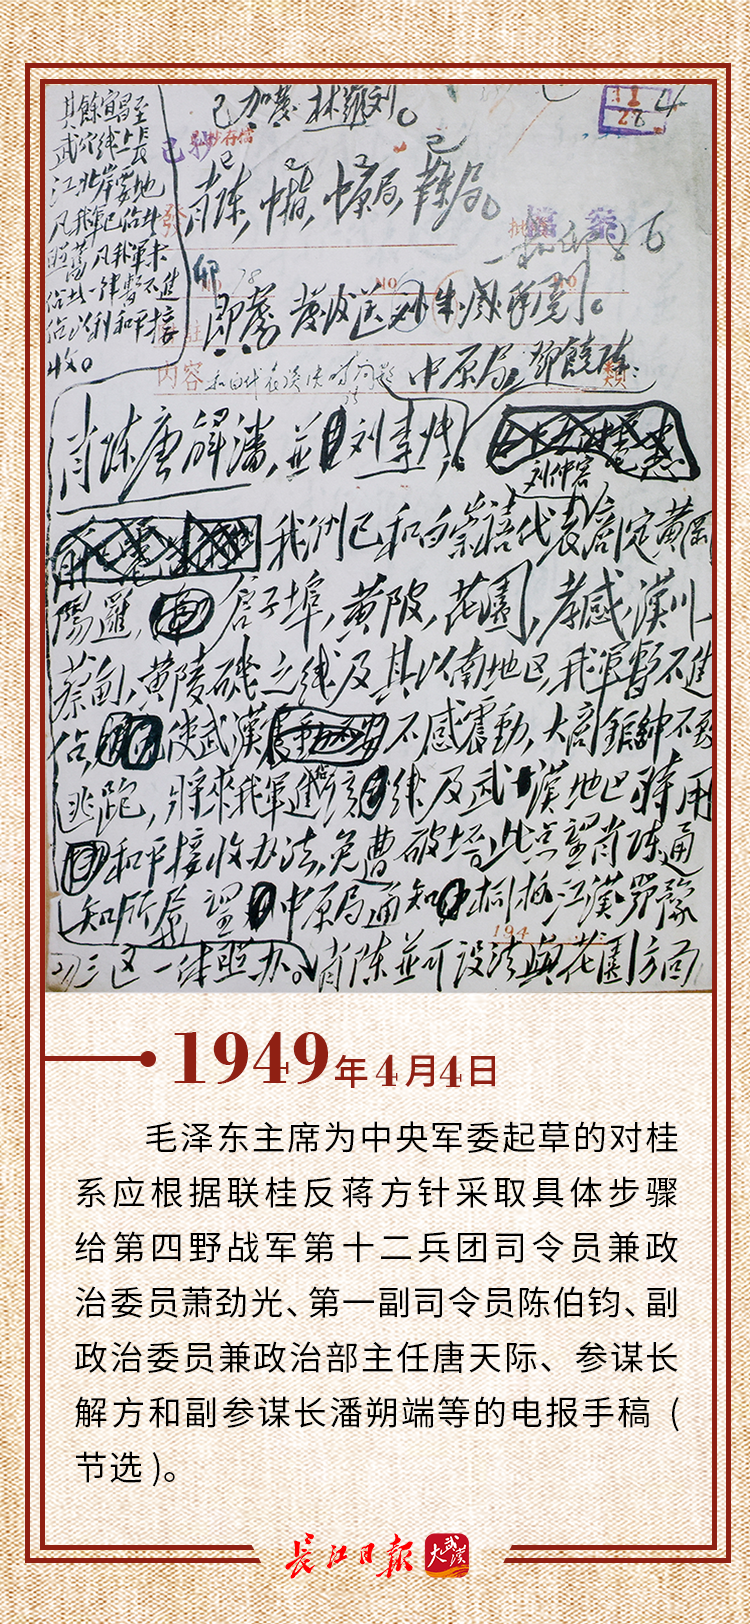 其餘宜昌至
武穴线上長
江北岸要地
凡我軍已佔者
照舊凡我軍未
佔者一律暫不進
佔以利和平接
收。
已加发林羅刘。
11
28
4
已抄
已抄存檔
發
肖陈,
卯
No
No
即發
中原局,
内容
类
肖陈唐解潘,並
刘李
刘仲容
我們已和白崇禧代表商定黄岡
陽邏,倉子埠,黄陂,花園,孝感,漢川,
蔡甸,黄陵磯之线及其以南地区,我軍暫不進
佔,使武漢不感震動,大商鉅紳不致
逃跑,將來我軍進佔该线及武漢地区時用
和平接收办法,免遭破坏。此点望肖陈通
知所屬,望中原局通知桐柏江漢鄂豫
三区一律照办。肖陈並可设法與花園方面
194
1949年4月4日
毛泽东主席为中央军委起草的对桂
系应根据联桂反蒋方针采取具体步骤
给第四野战军第十二兵团司令员兼政
治委员萧劲光、第一副司令员陈伯钧、副
政治委员兼政治部主任唐天际、参谋长
解方和副参谋长潘朔端等的电报手稿(
节选)。
长江日报
大武汉